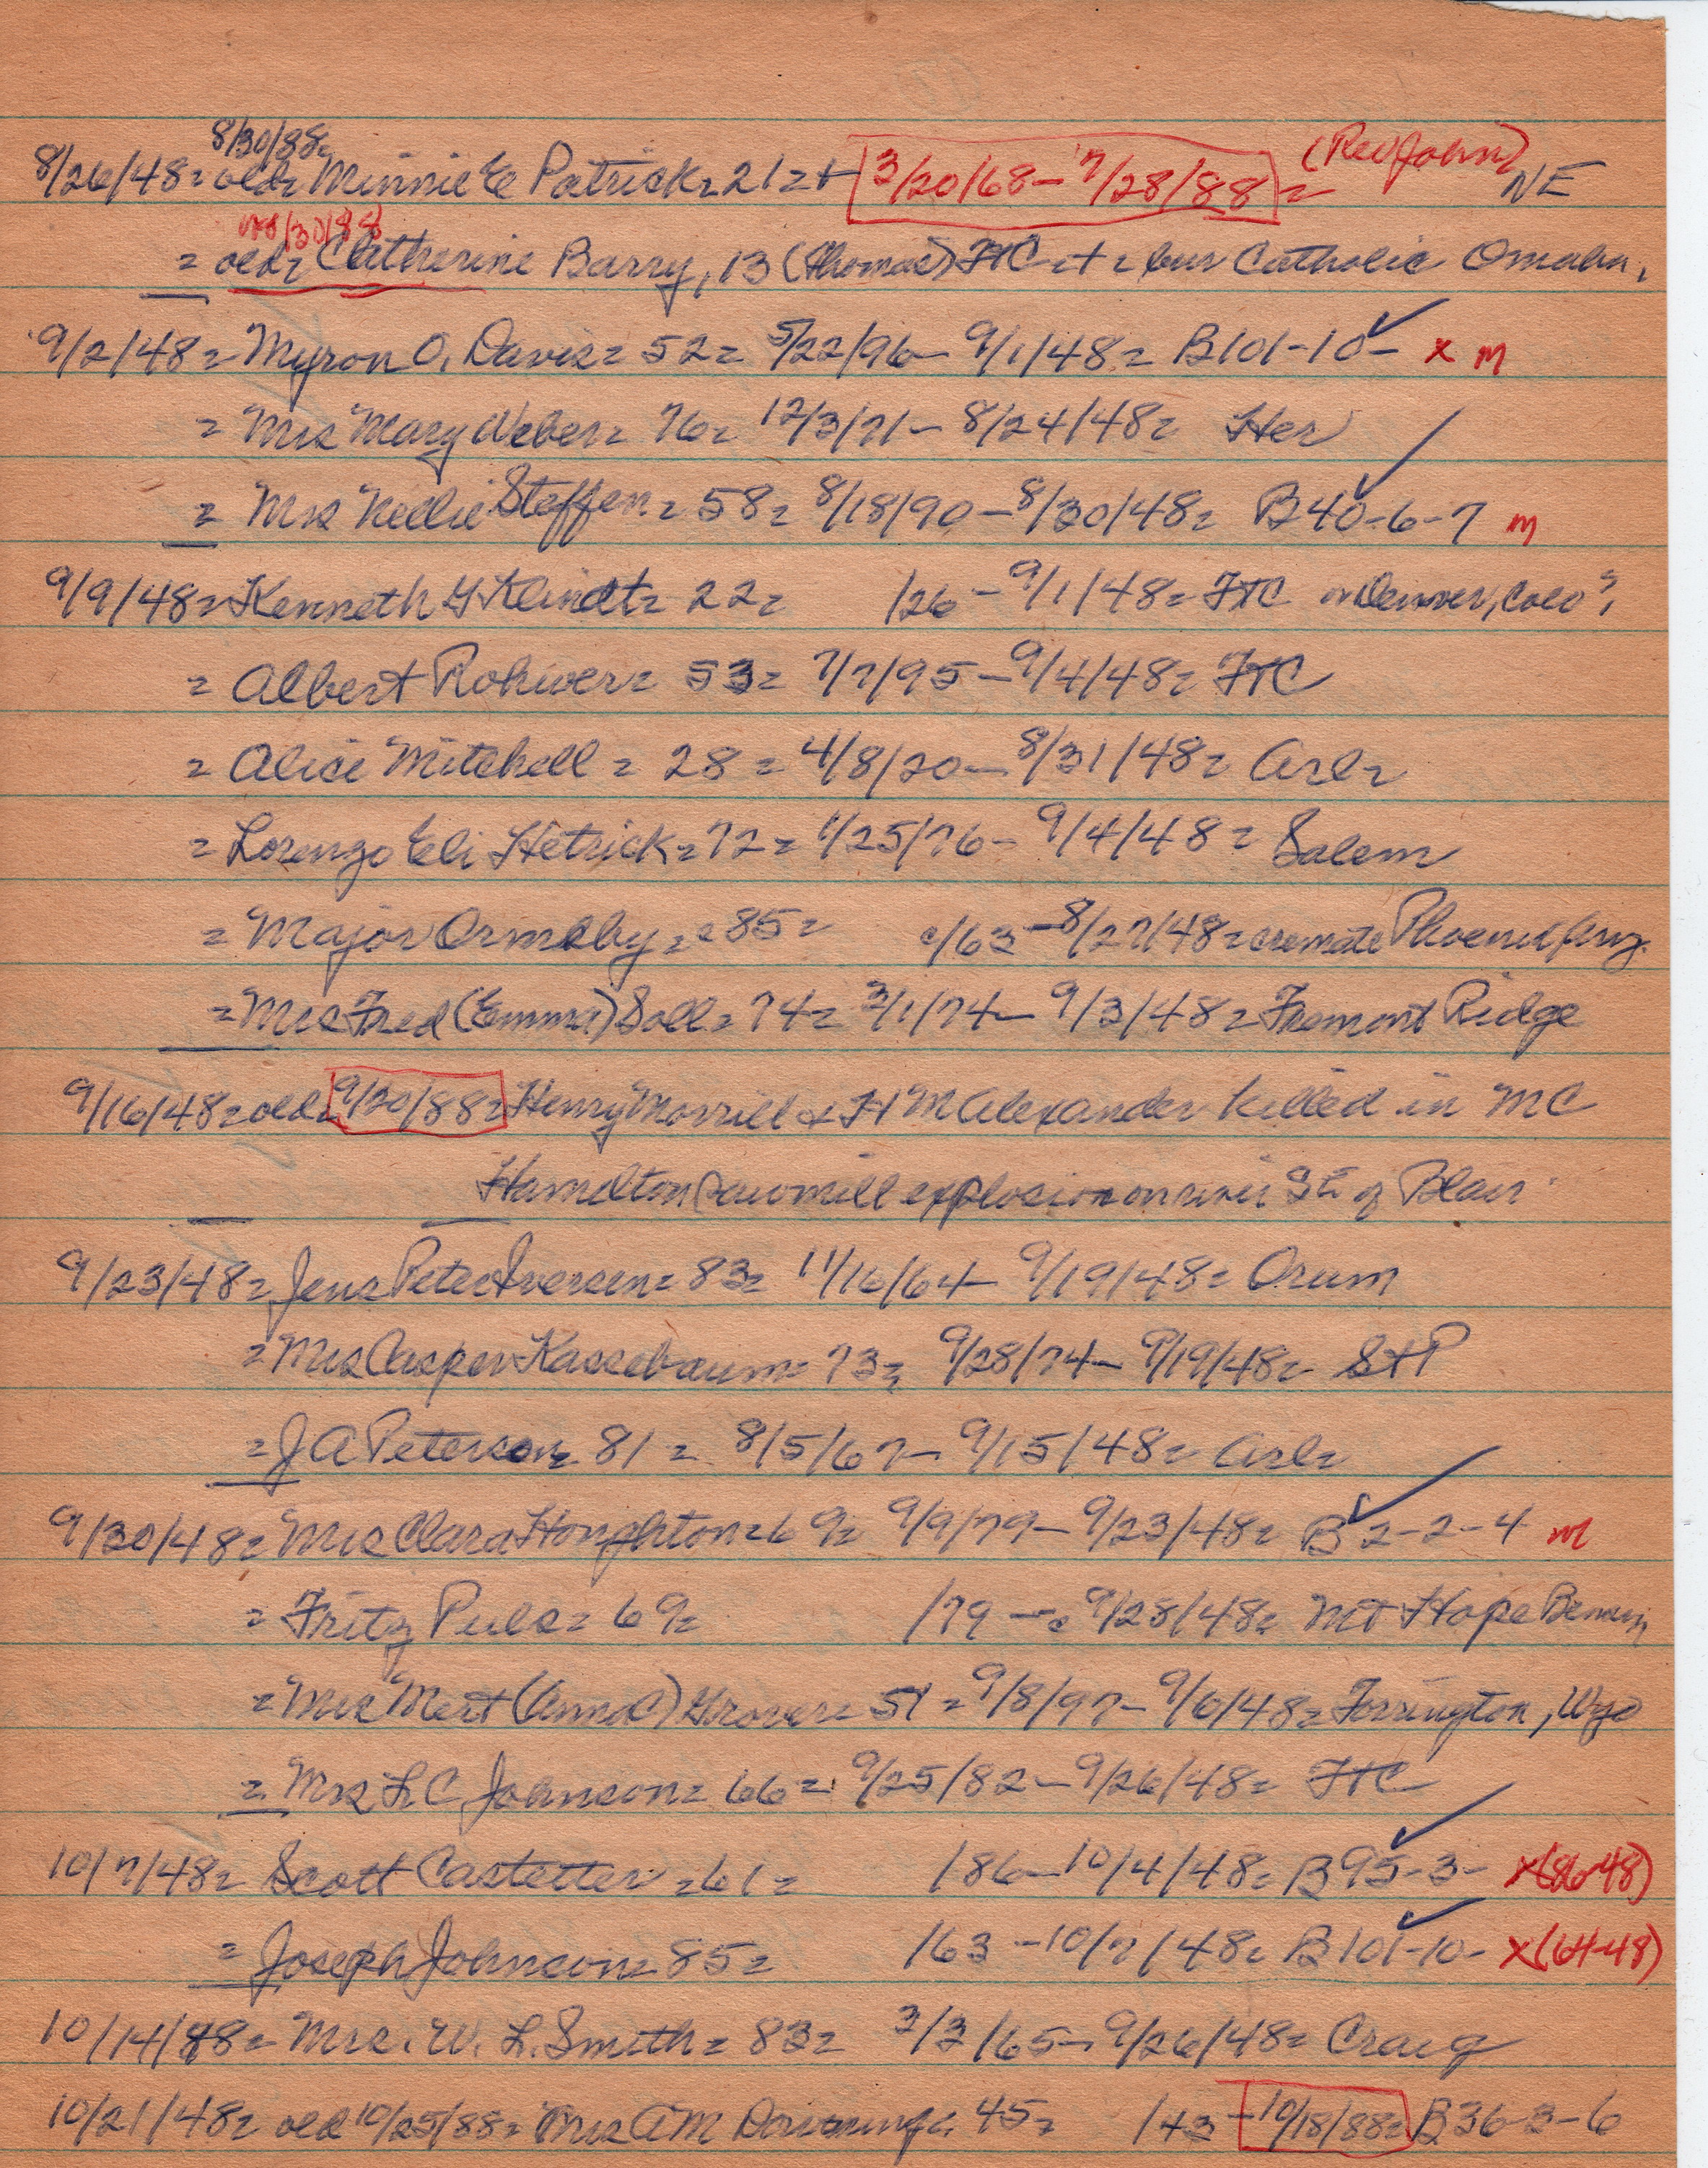 8/30/88=
8/26/48= old= Minnie E Patrick= 21= + 3/20/68- 7/28/88 = (Rev John) NE
8/30/88
= old= Catherine Barry, 13 (Thomas) FtC + = bur Catholic Omaha,
9/2/48= Myron O. Davis= 52= 5/22/96- 9/1/48= B101-10- x m
= Mrs Mary Weber= 76= 12/3/71- 8/24/48= Her
= Mrs Nellie Steffen= 58= 8/18/90-8/30/48= B40-6-7 m
9/9/48= Kenneth G Klindt= 22= /26-9/1/48= FTC Denver, Colo?,
= Albert Rohwer= 53= 7/7/95-9/4/48= FTC
= Alice Mitchell= 28= 4/8/20-8/31/48= Arl=
= Lorenzo Eli Hetrick=72= 1/25/76- 9/4/48= Salem
= Major Ormsby= =85= c/63-8/27/48= cremate Phoenix Ariz.
=Mrs Fred (Emma) Soll= 74= 3/1/74- 9/3/48= Fremont Ridge
9/16/48= old= 9/20/88= Henry Morrill & H M Alexander killed in MC
Hamilton sawmill explosion on river SE of Blair
9/23/48= Jens Peter Iversen= 83= 11/16/64- 9/19/48= Orum
=Mrs Casper Kassebaum= 73= 9/28/74- 9/19/48= St P
=J A Peterson= 81= 8/5/67- 9/15/48= Arl=
9/30/48= Mrs Clara Houghton=69= 9/9/79- 9/23/48= B 2-2-4 m
= Fritz Puls= 69= /79 - 9/28/48= Mt Hope
=Mrs Mert (Anna) Grover= 51= 9/8/97- 9/6/48= Torrington, Wyo
= Mrs L C Johnson= 66= 9/25/82-9/26/48= FTC
10/7/48= Scott Castetter =61= /86-10/4/48= B95-3- x(86-48)
= Joseph Johnson= 85= /63 -10/7/48= B101-10- x(64-48)
10/14/48= Mrs. W. L. Smith= 83= 3/3/65- 9/26/48= Craig
10/21/48= old 10/25/88= Mrs A M Downing= 45= /43 -10/18/88= B36-3-6